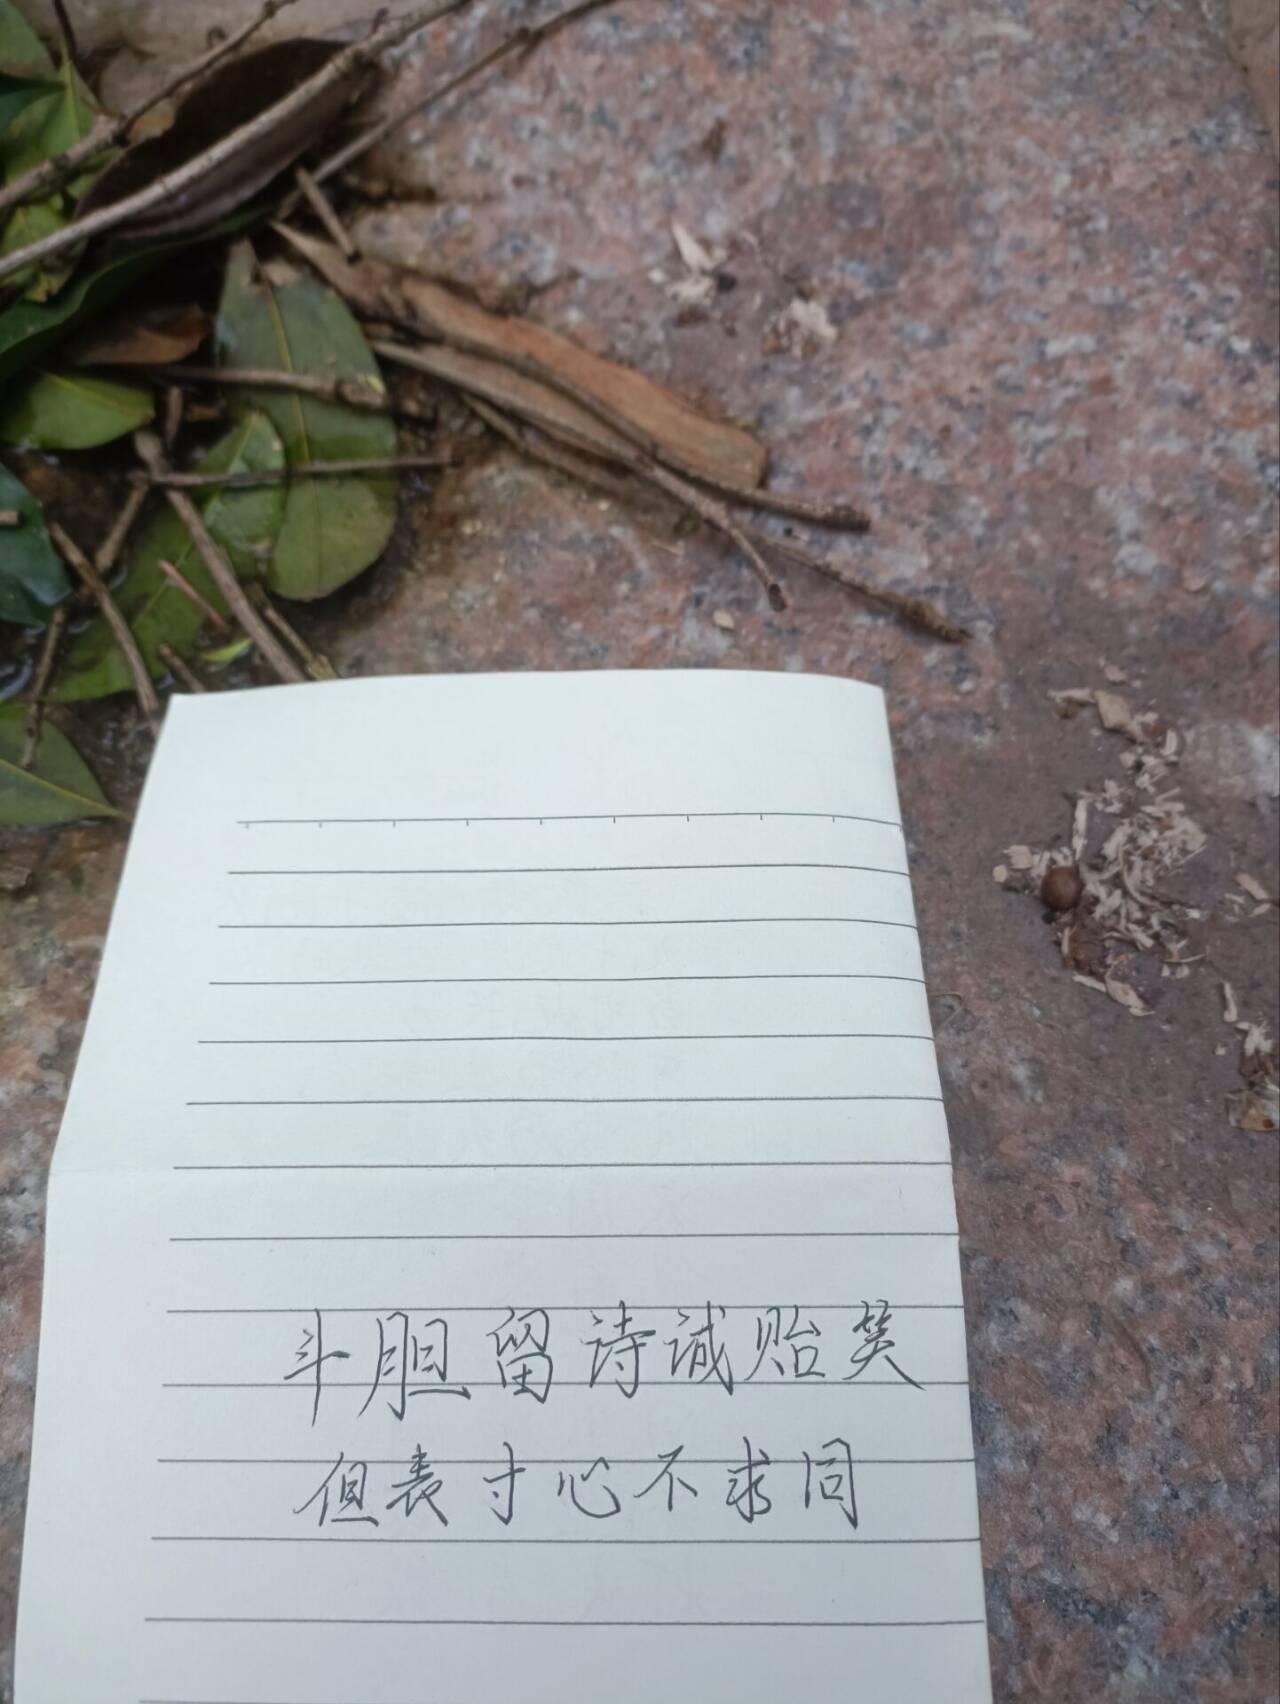 斗胆留诗诚贻笑
但表寸心不求同